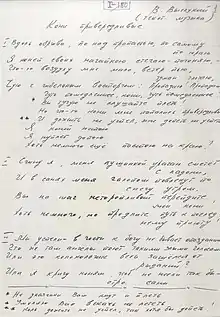 I-150
В. Высоцкий
(текст и музыка)
Кони привередливые
I Вдоль обрыва, по над пропастью, по самому
по краю
Я коней своих нагайкою стегаю – погоняю, –
Что-то воздуху мне мало, ветер пью,
туман глотаю,
Чую с гибельным восторгом: Пропадаю, Пропадаю!
Чуть помедленнее, кони, чуть помедленнее!
* Вы тугую не слушайте плеть
Но что-то кони мне попались привередливые
** И дожить не успел, мне допеть не успеть
Я коней напою
Я куплет допою
Хоть немного еще постою на краю!
II Сгину я, меня пушинкой ураган сметет
с ладони,
И в санях меня галопом повлекут по
снегу утром.
Вы на шаг неторопливый перейдите,
мои кони!
Хоть немного, но продлите путь к послед-
нему приюту
III Мы успели – в гости к богу не бывает опозданий
Что ж там ангелы поют такими злыми голосами
Или это колокольчик весь зашелся от
рыданий?
Или я кричу коням, чтоб не несли так бы-
стро сани
* Не указчики Вам кнут и плеть
* Умоляю Вас вскачь не лететь